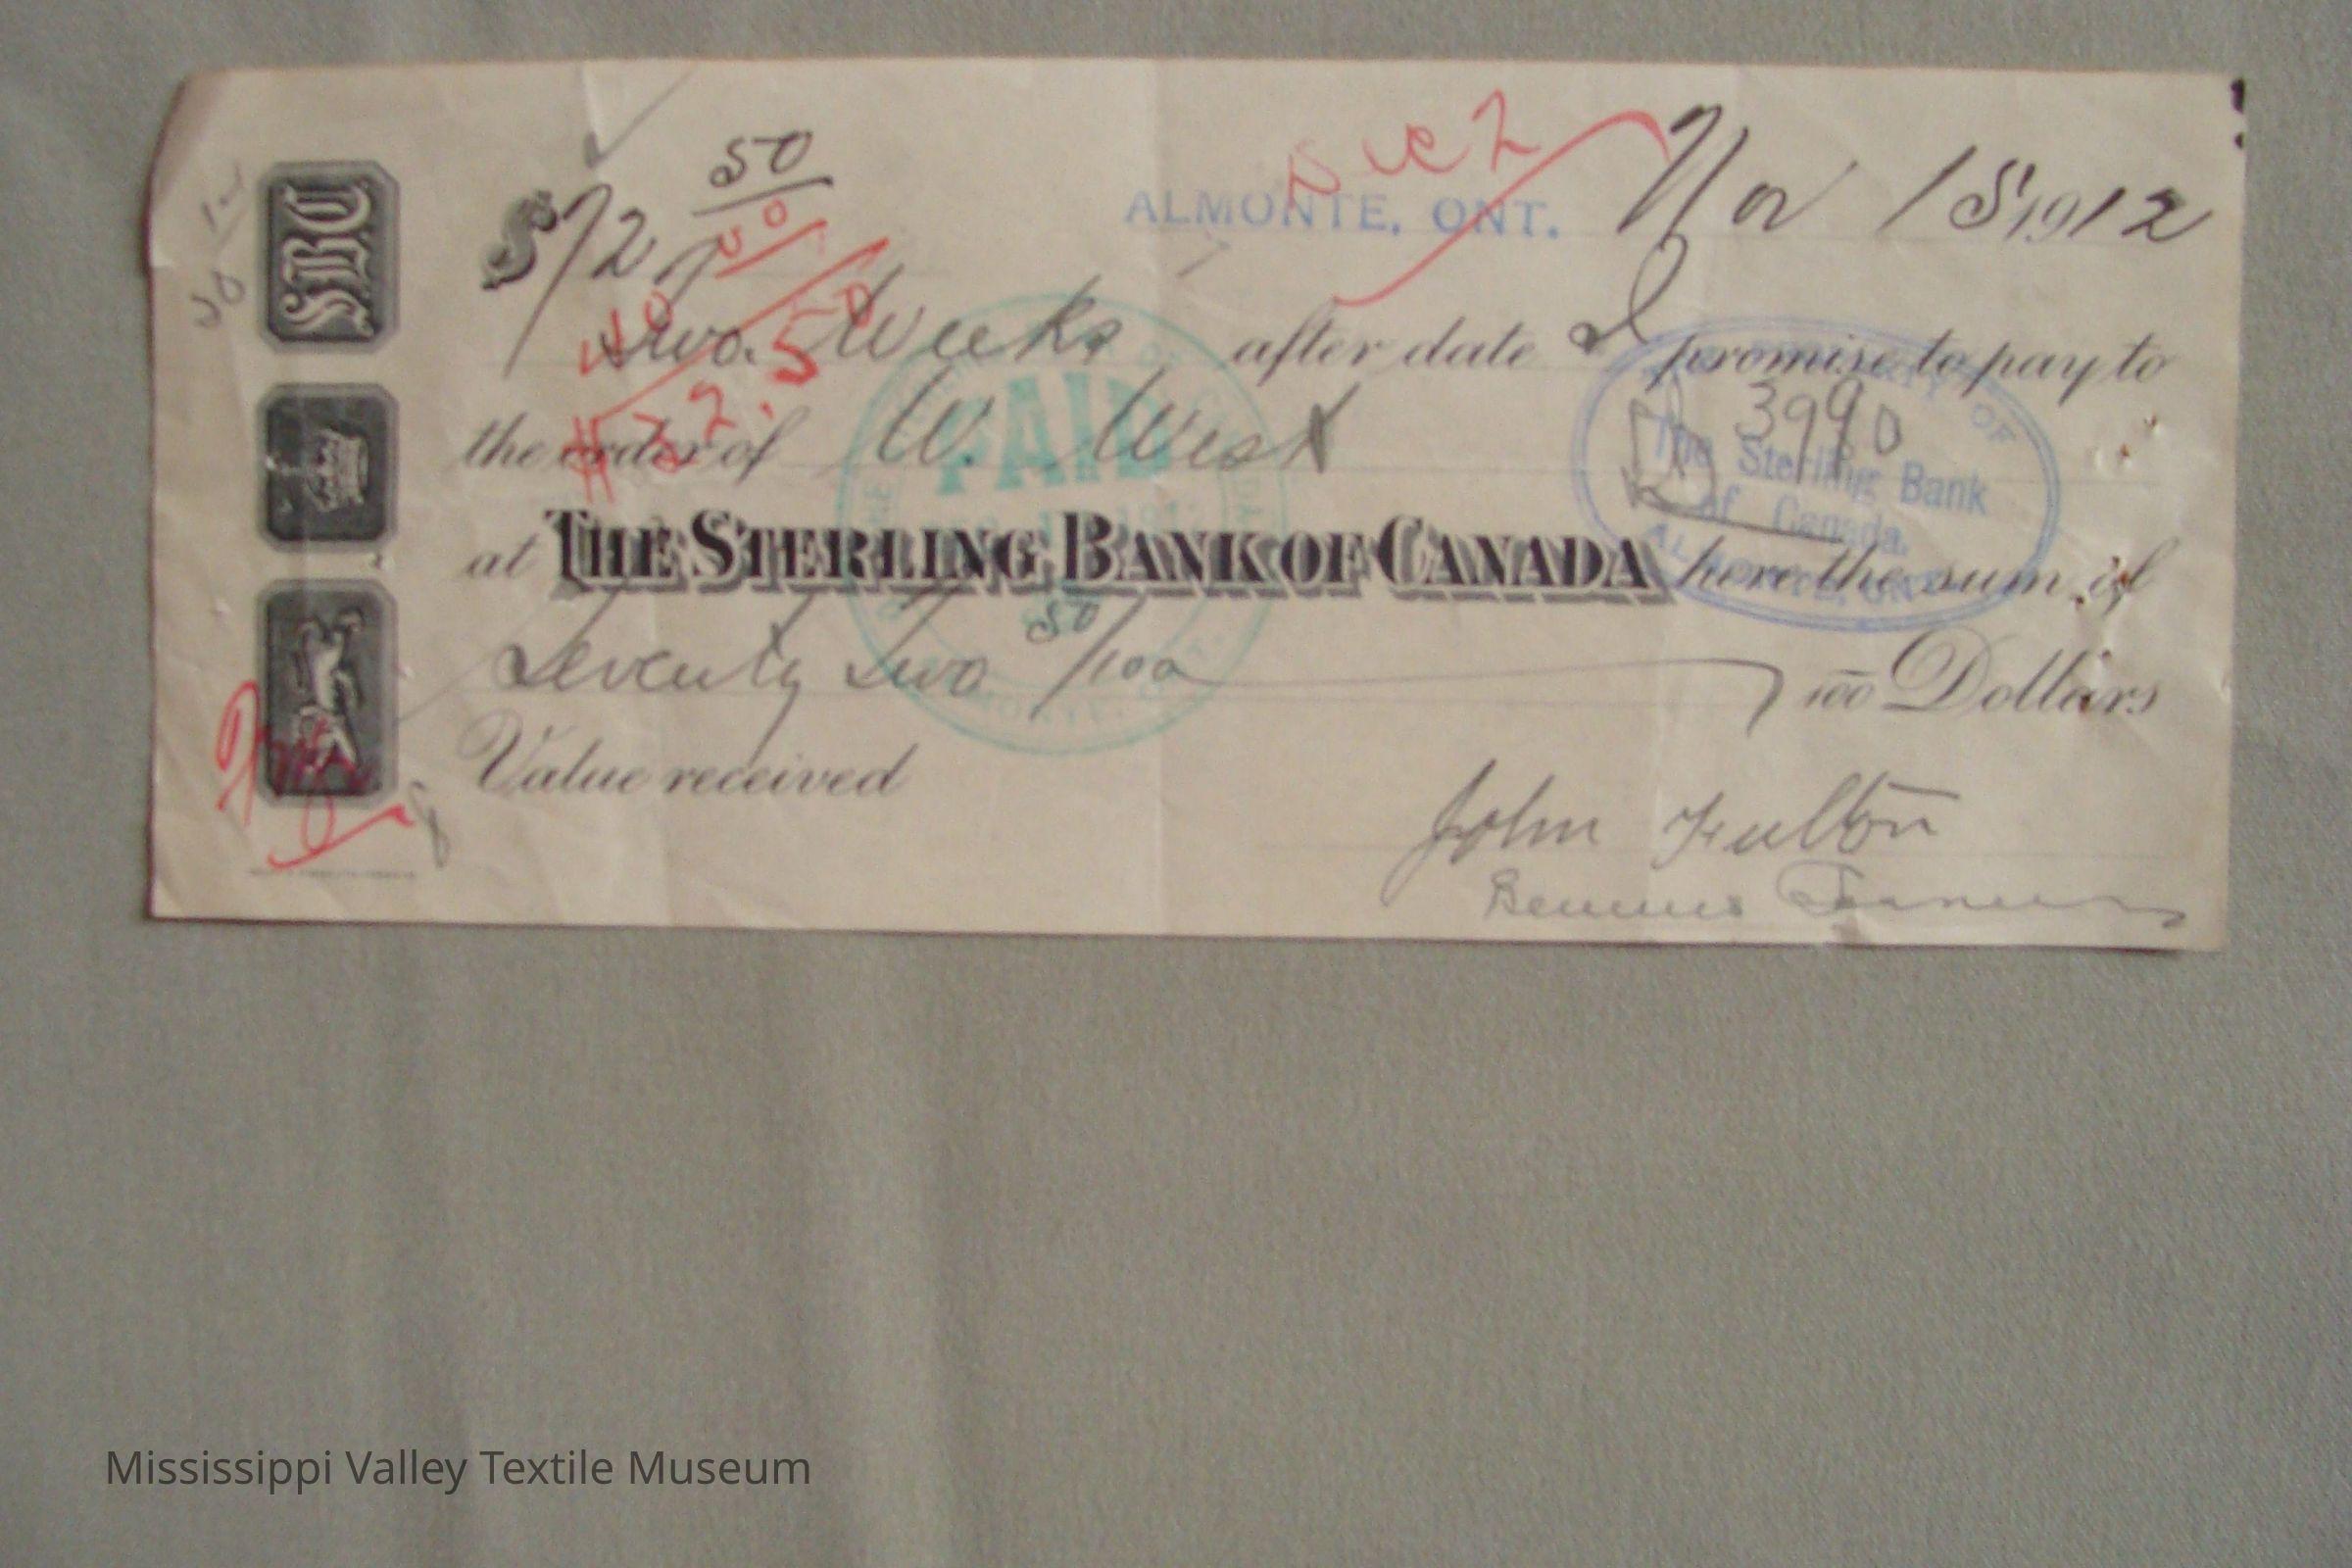 SBC
$72 50
ALMONTE, ONT. Nov 15 1912
Dec 2
Two Weeks after date I promise to pay to
40 00
$32.50
the order of W. West
PAID
3990
The Sterling Bank
of Canada.
at THE STERLING BANK OF CANADA here the sum of
Seventy Two 50/100 100 Dollars
Value received
John Fulton
Mississippi Valley Textile Museum